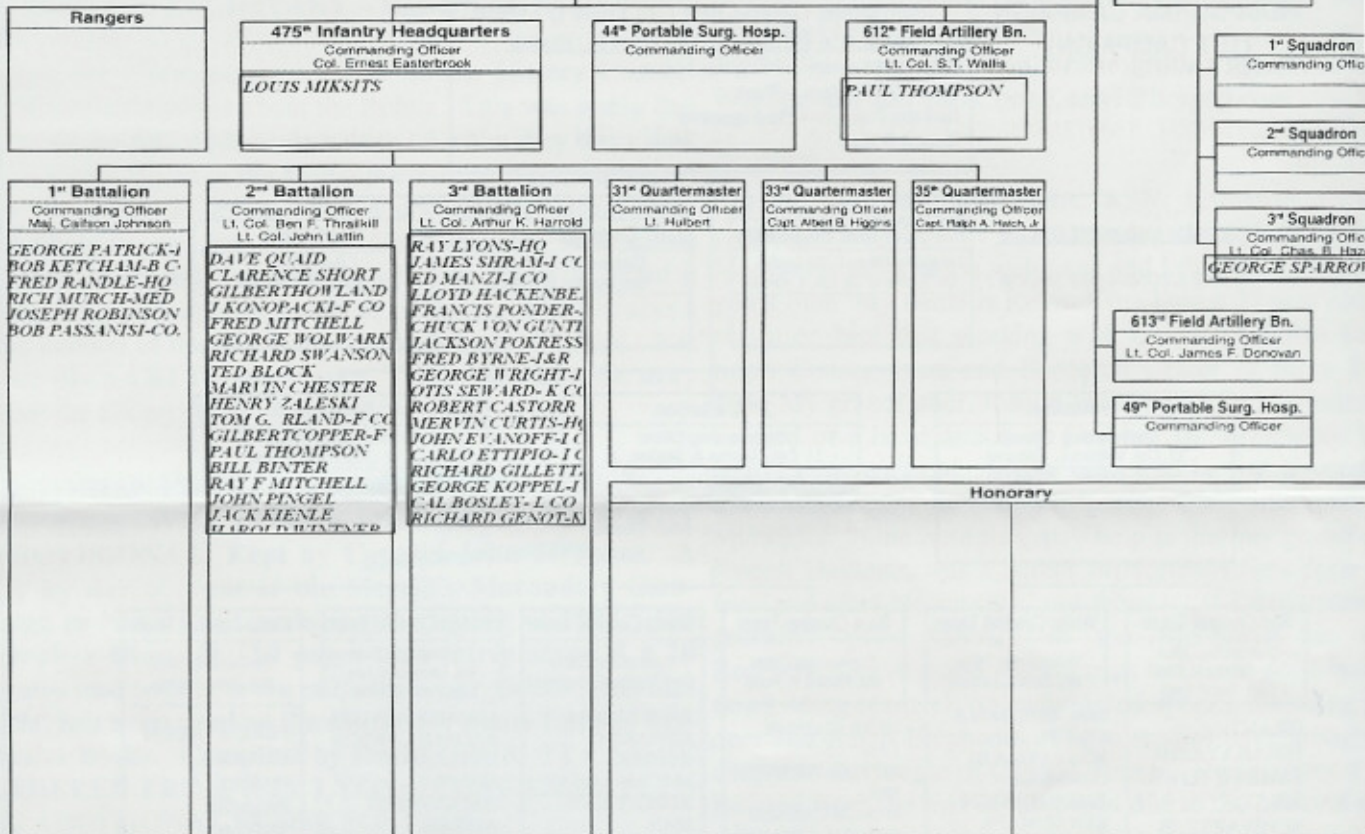 Rangers
475th Infantry Headquarters
Commanding Officer
Col. Ernest Easterbrook
LOUIS MIKSITS
44th Portable Surg. Hosp.
Commanding Officer
612th Field Artillery Bn.
Commanding Officer
Lt. Col. S.T. Wallis
PAUL THOMPSON
1st Squadron
Commanding Offic
2nd Squadron
Commanding Offic
3rd Squadron
Commanding Offic
Lt. Col. Chas. B. Haz
GEORGE SPARROW
1st Battalion
Commanding Officer
Maj. Johnson
GEORGE PATRICK-
BOB KETCHAM-B C
FRED RANDLE-HQ
RICH MURCH-MED
JOSEPH ROBINSON
BOB PASSANISI-CO.
2nd Battalion
Commanding Officer
Lt. Col. Ben F. Thrailkill
Lt. Col. John Lattin
DAVE QUAID
CLARENCE SHORT
GILBERTHOWLAND
J KONOPACKI-F CO
FRED MITCHELL
GEORGE WOLWARK
RICHARD SWANSON
TED BLOCK
MARVIN CHESTER
HENRY ZALESKI
TOM G. RLAND-F CO
GILBERTCOPPER-F
PAUL THOMPSON
BILL BINTER
RAY F MITCHELL
JOHN PINGEL
JACK KIENLE
HAROLD WINTNER
3rd Battalion
Commanding Officer
Lt. Col. Arthur K. Harrold
RAY LYONS-HQ
JAMES SHRAM-I CO
ED MANZI-I CO
LLOYD HACKENBE
FRANCIS PONDER-
CHUCK VON GUNTE
JACKSON POKRESS
FRED BYRNE-I&R
GEORGE WRIGHT-I
OTIS SEWARD- K CO
ROBERT CASTORR
MERVIN CURTIS-HQ
JOHN EVANOFF-I C
CARLO ETTIPIO- I C
RICHARD GILLETT
GEORGE KOPPEL-I
CAL BOSLEY- L CO
RICHARD GENOT-K
31st Quartermaster
Commanding Officer
Lt. Hulbert
33rd Quartermaster
Commanding Officer
Capt. Albert B. Higgins
35th Quartermaster
Commanding Officer
Capt. Ralph A. Hatch, Jr
613rd Field Artillery Bn.
Commanding Officer
Lt. Col. James F. Donovan
49th Portable Surg. Hosp.
Commanding Officer
Honorary